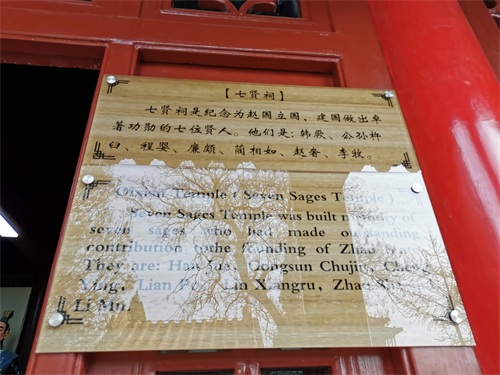 【七贤祠】
七贤祠是纪念为赵国立国、建国做出卓
著功勋的七位贤人。他们是：韩厥、公孙杵
臼、程婴、廉颇、蔺相如、赵奢、李牧。
Qixian Temple ( Seven Sages Temple )
Seven Sages Temple was built memory of
seven sages who had made outstanding
contribution tothe founding of Zhao
They are: Han Jue, Gongsun Chujiu, Cheng
Ying, Lian Po, Lin Xiangru, Zhao
Li Mu.